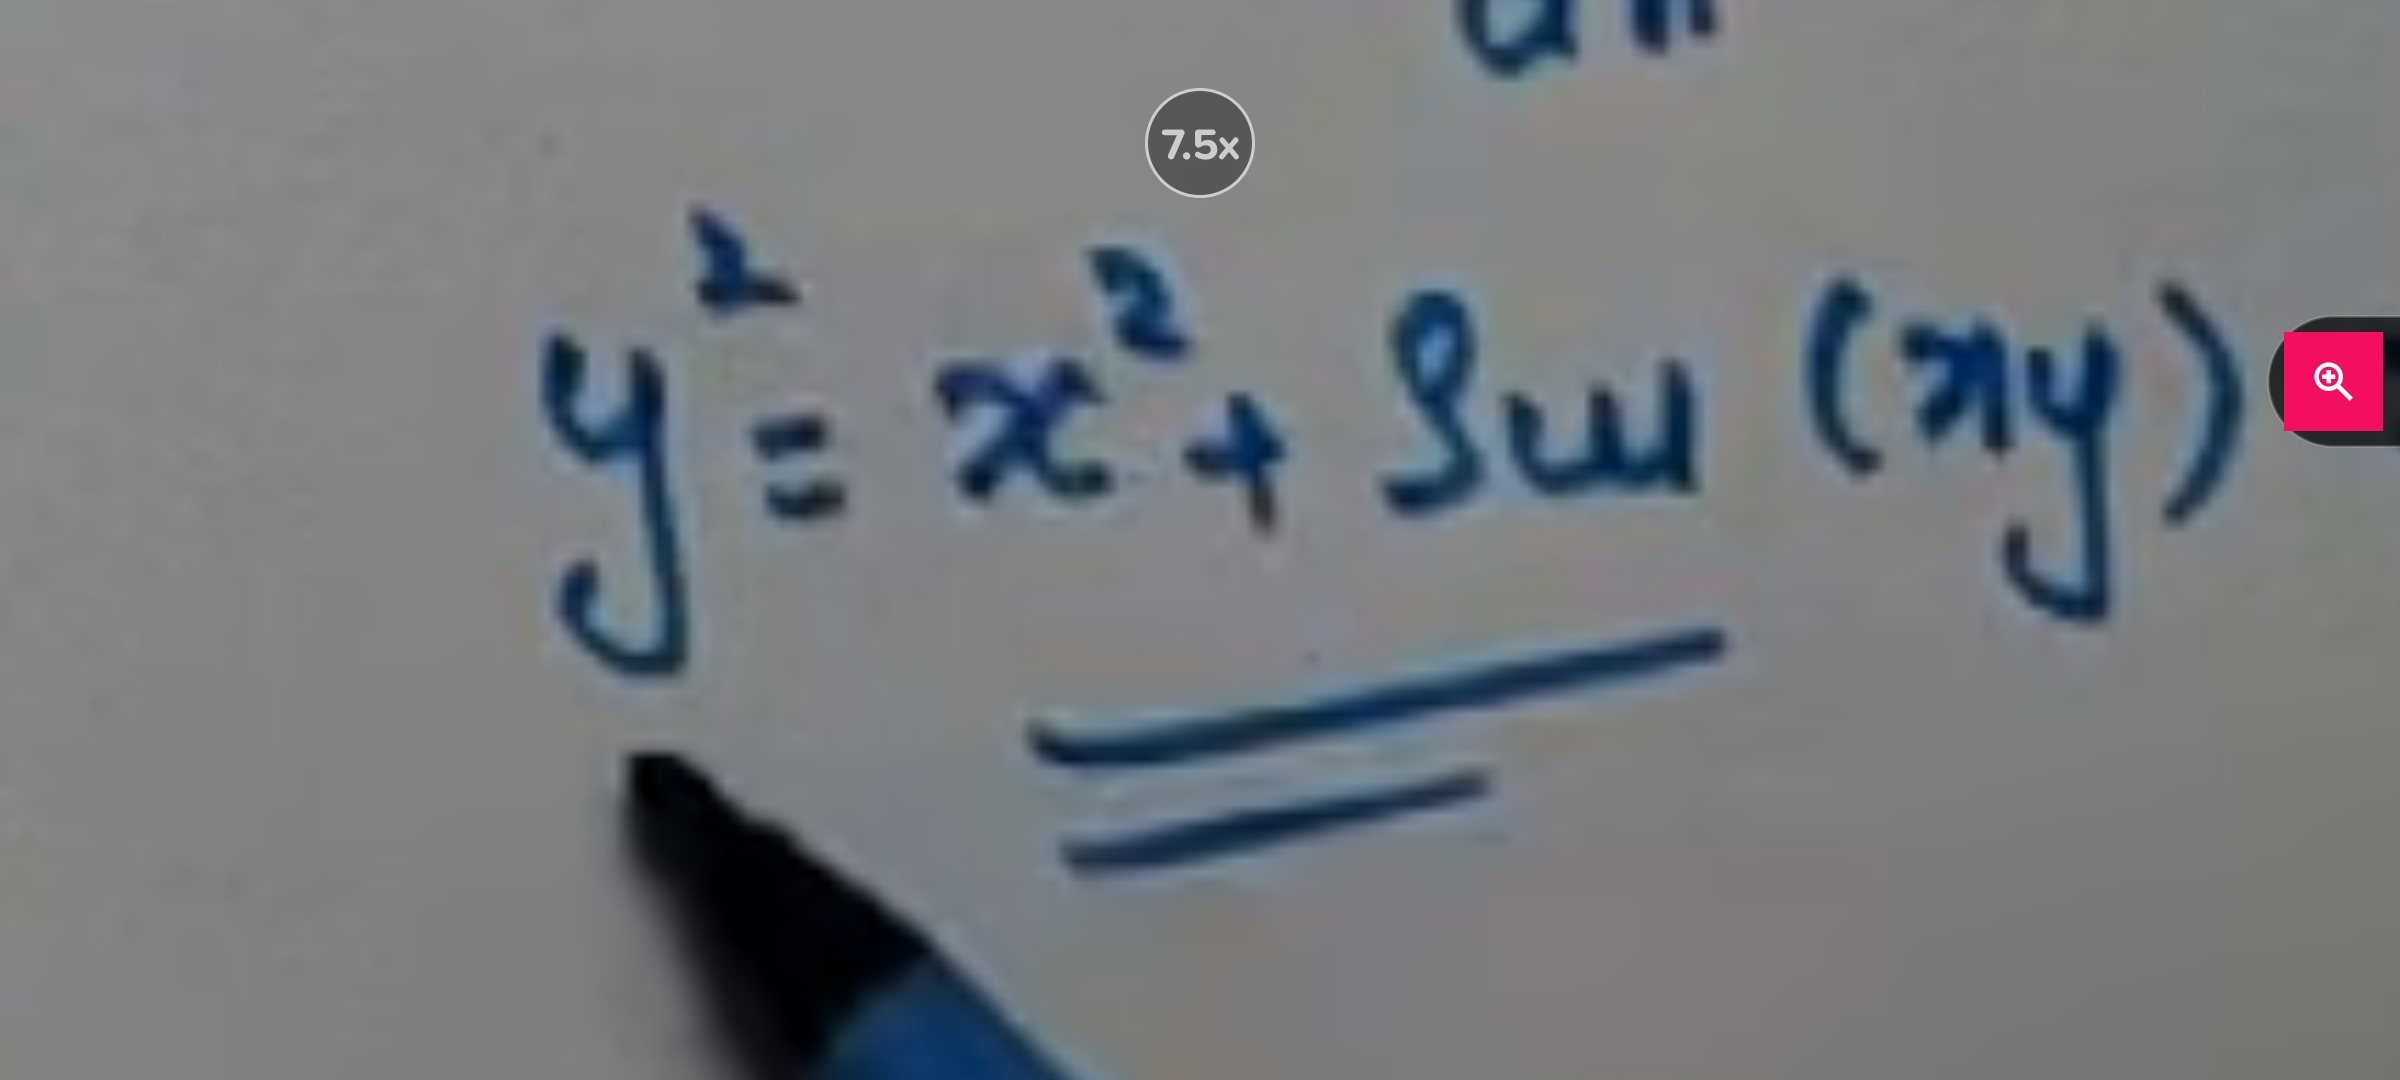 7.5x
y² = x² + Sin (xy)